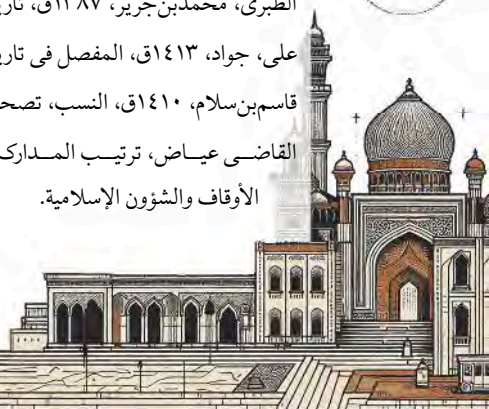 الطبری، محمدبن‌جریر، ۱۳۸۷ق، تاری
علی، جواد، ۱٤۱۳ق، المفصل فی تاری
قاسم‌بن‌سلام، ۱٤۱۰ق، النسب، تصحی
القاضی عیاض، ترتیب المدارک
الأوقاف والشؤون الإسلامیة.